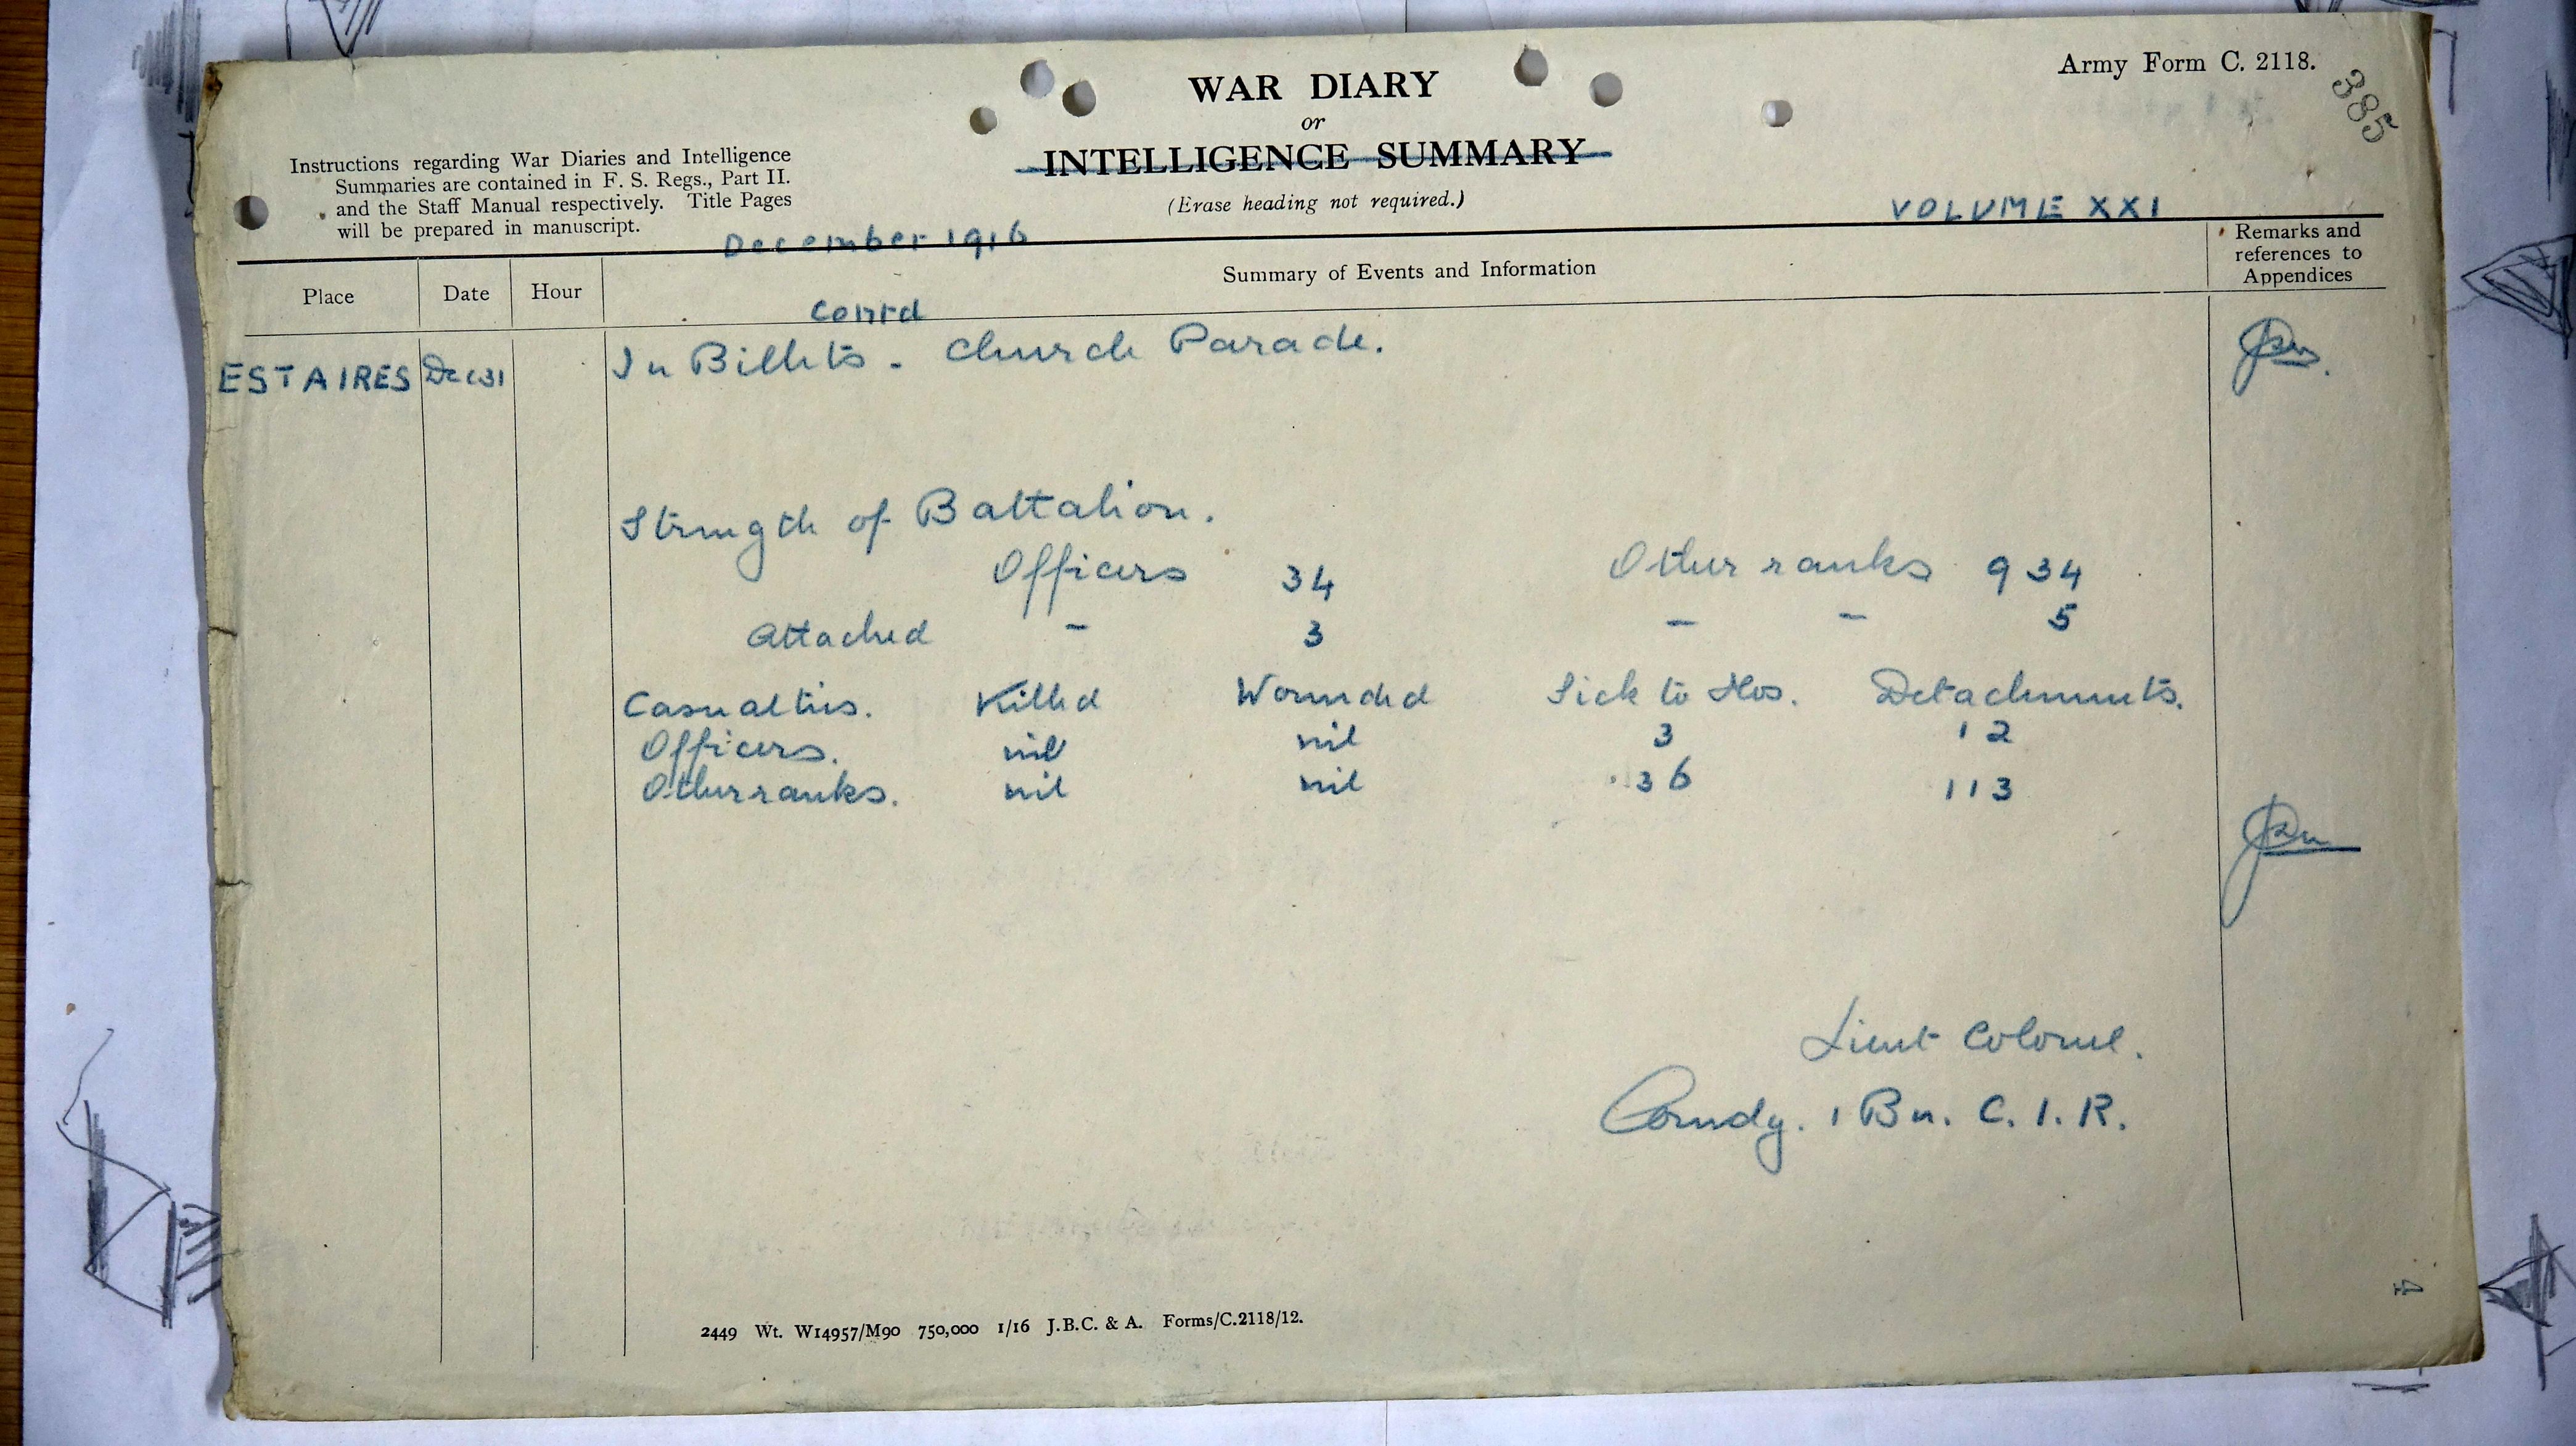 Army Form C. 2118.
385
WAR DIARY
or
INTELLIGENCE SUMMARY
(Erase heading not required.)
Instructions regarding War Diaries and Intelligence
Summaries are contained in F. S. Regs., Part II.
and the Staff Manual respectively. Title Pages
will be prepared in manuscript.
December 1916
VOLUME XXI
Place Date Hour Summary of Events and Information Remarks and
references to
Appendices
Contd
ESTAIRES Dec 31 In Billets - Church Parade.
Strength of Battalion.
Officers 34 Other ranks 934
Attached - 3 - - 5
Casualties. Killed Wounded Sick to Hos. Detachments.
Officers. nil nil 3 12
Other ranks. nil nil 36 113
Lieut Colonel.
Comdg. 1 Bn. C. I. R.
2449 Wt. W14957/M90 750,000 1/16 J.B.C. & A. Forms/C.2118/12.